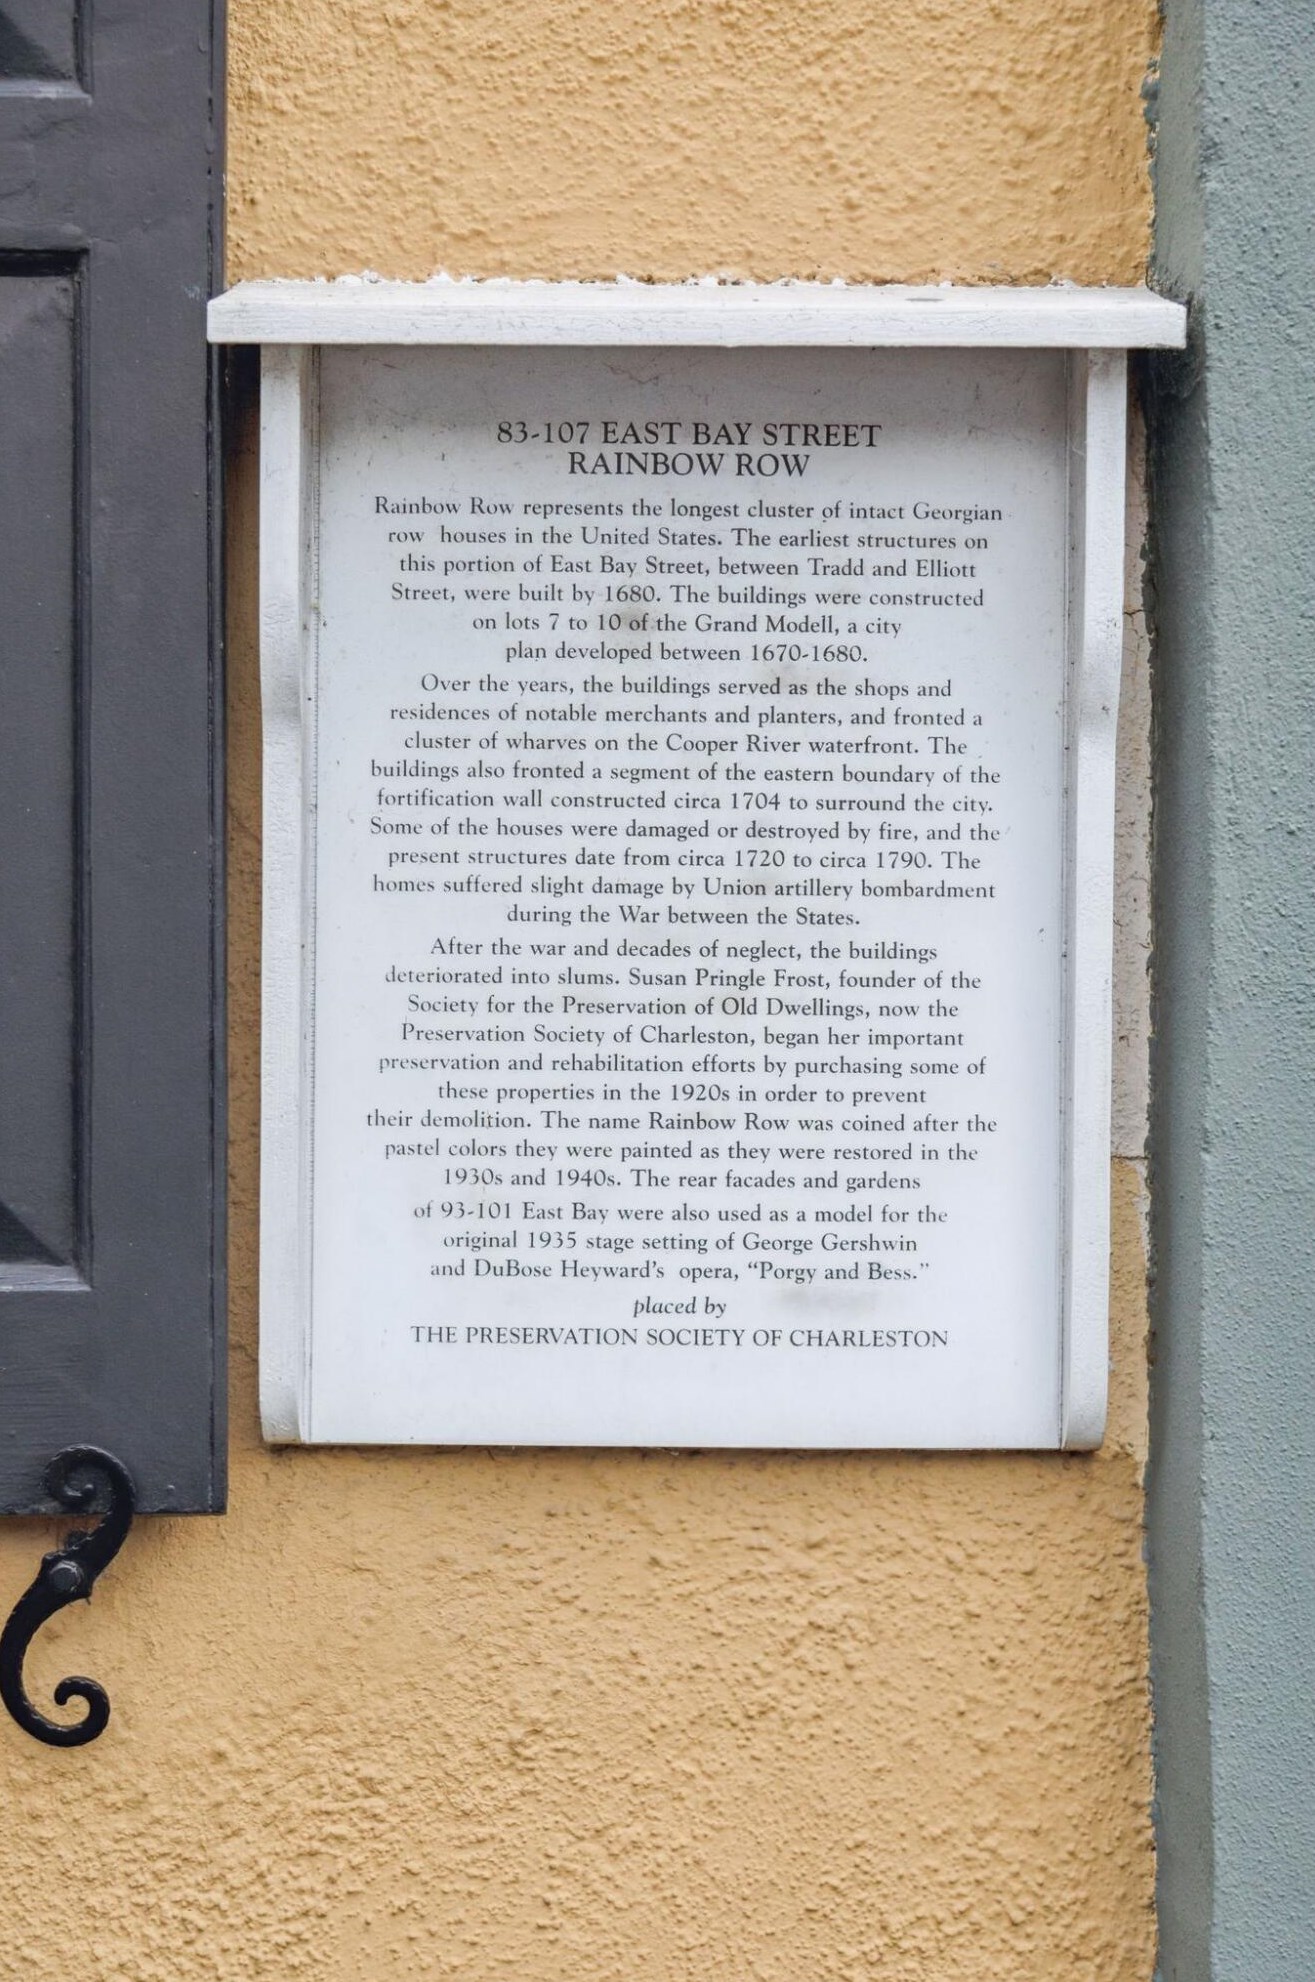 83-107 EAST BAY STREET
RAINBOW ROW
Rainbow Row represents the longest cluster of intact Georgian
row houses in the United States. The earliest structures on
this portion of East Bay Street, between Tradd and Elliott
Street, were built by 1680. The buildings were constructed
on lots 7 to 10 of the Grand Modell, a city
plan developed between 1670-1680.
Over the years, the buildings served as the shops and
residences of notable merchants and planters, and fronted a
cluster of wharves on the Cooper River waterfront. The
buildings also fronted a segment of the eastern boundary of the
fortification wall constructed circa 1704 to surround the city.
Some of the houses were damaged or destroyed by fire, and the
present structures date from circa 1720 to circa 1790. The
homes suffered slight damage by Union artillery bombardment
during the War between the States.
After the war and decades of neglect, the buildings
deteriorated into slums. Susan Pringle Frost, founder of the
Society for the Preservation of Old Dwellings, now the
Preservation Society of Charleston, began her important
preservation and rehabilitation efforts by purchasing some of
these properties in the 1920s in order to prevent
their demolition. The name Rainbow Row was coined after the
pastel colors they were painted as they were restored in the
1930s and 1940s. The rear facades and gardens
of 93-101 East Bay were also used as a model for the
original 1935 stage setting of George Gershwin
and DuBose Heyward's opera, "Porgy and Bess."
placed by
THE PRESERVATION SOCIETY OF CHARLESTON